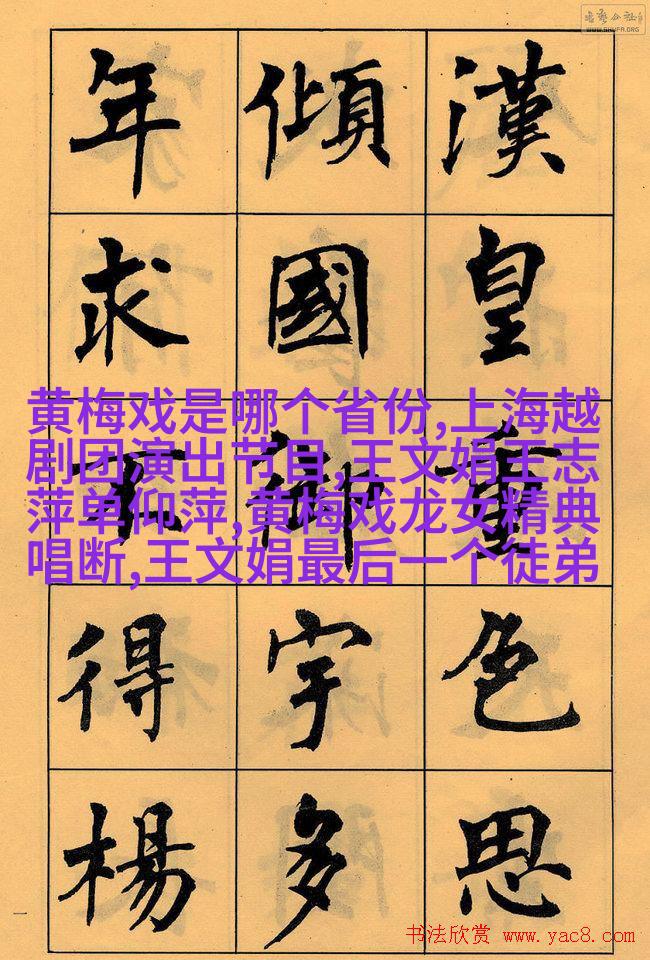 漢皇重色思
傾國御宇多
年求不得楊
黄梅戏是哪个省份,上海越
剧团演出节目,王文娟王志
萍单仰萍,黄梅戏龙女精典
唱断,王文娟最后一个徒弟
WWW.SHUFA.ORG
一
书法欣赏 www.yac8.com